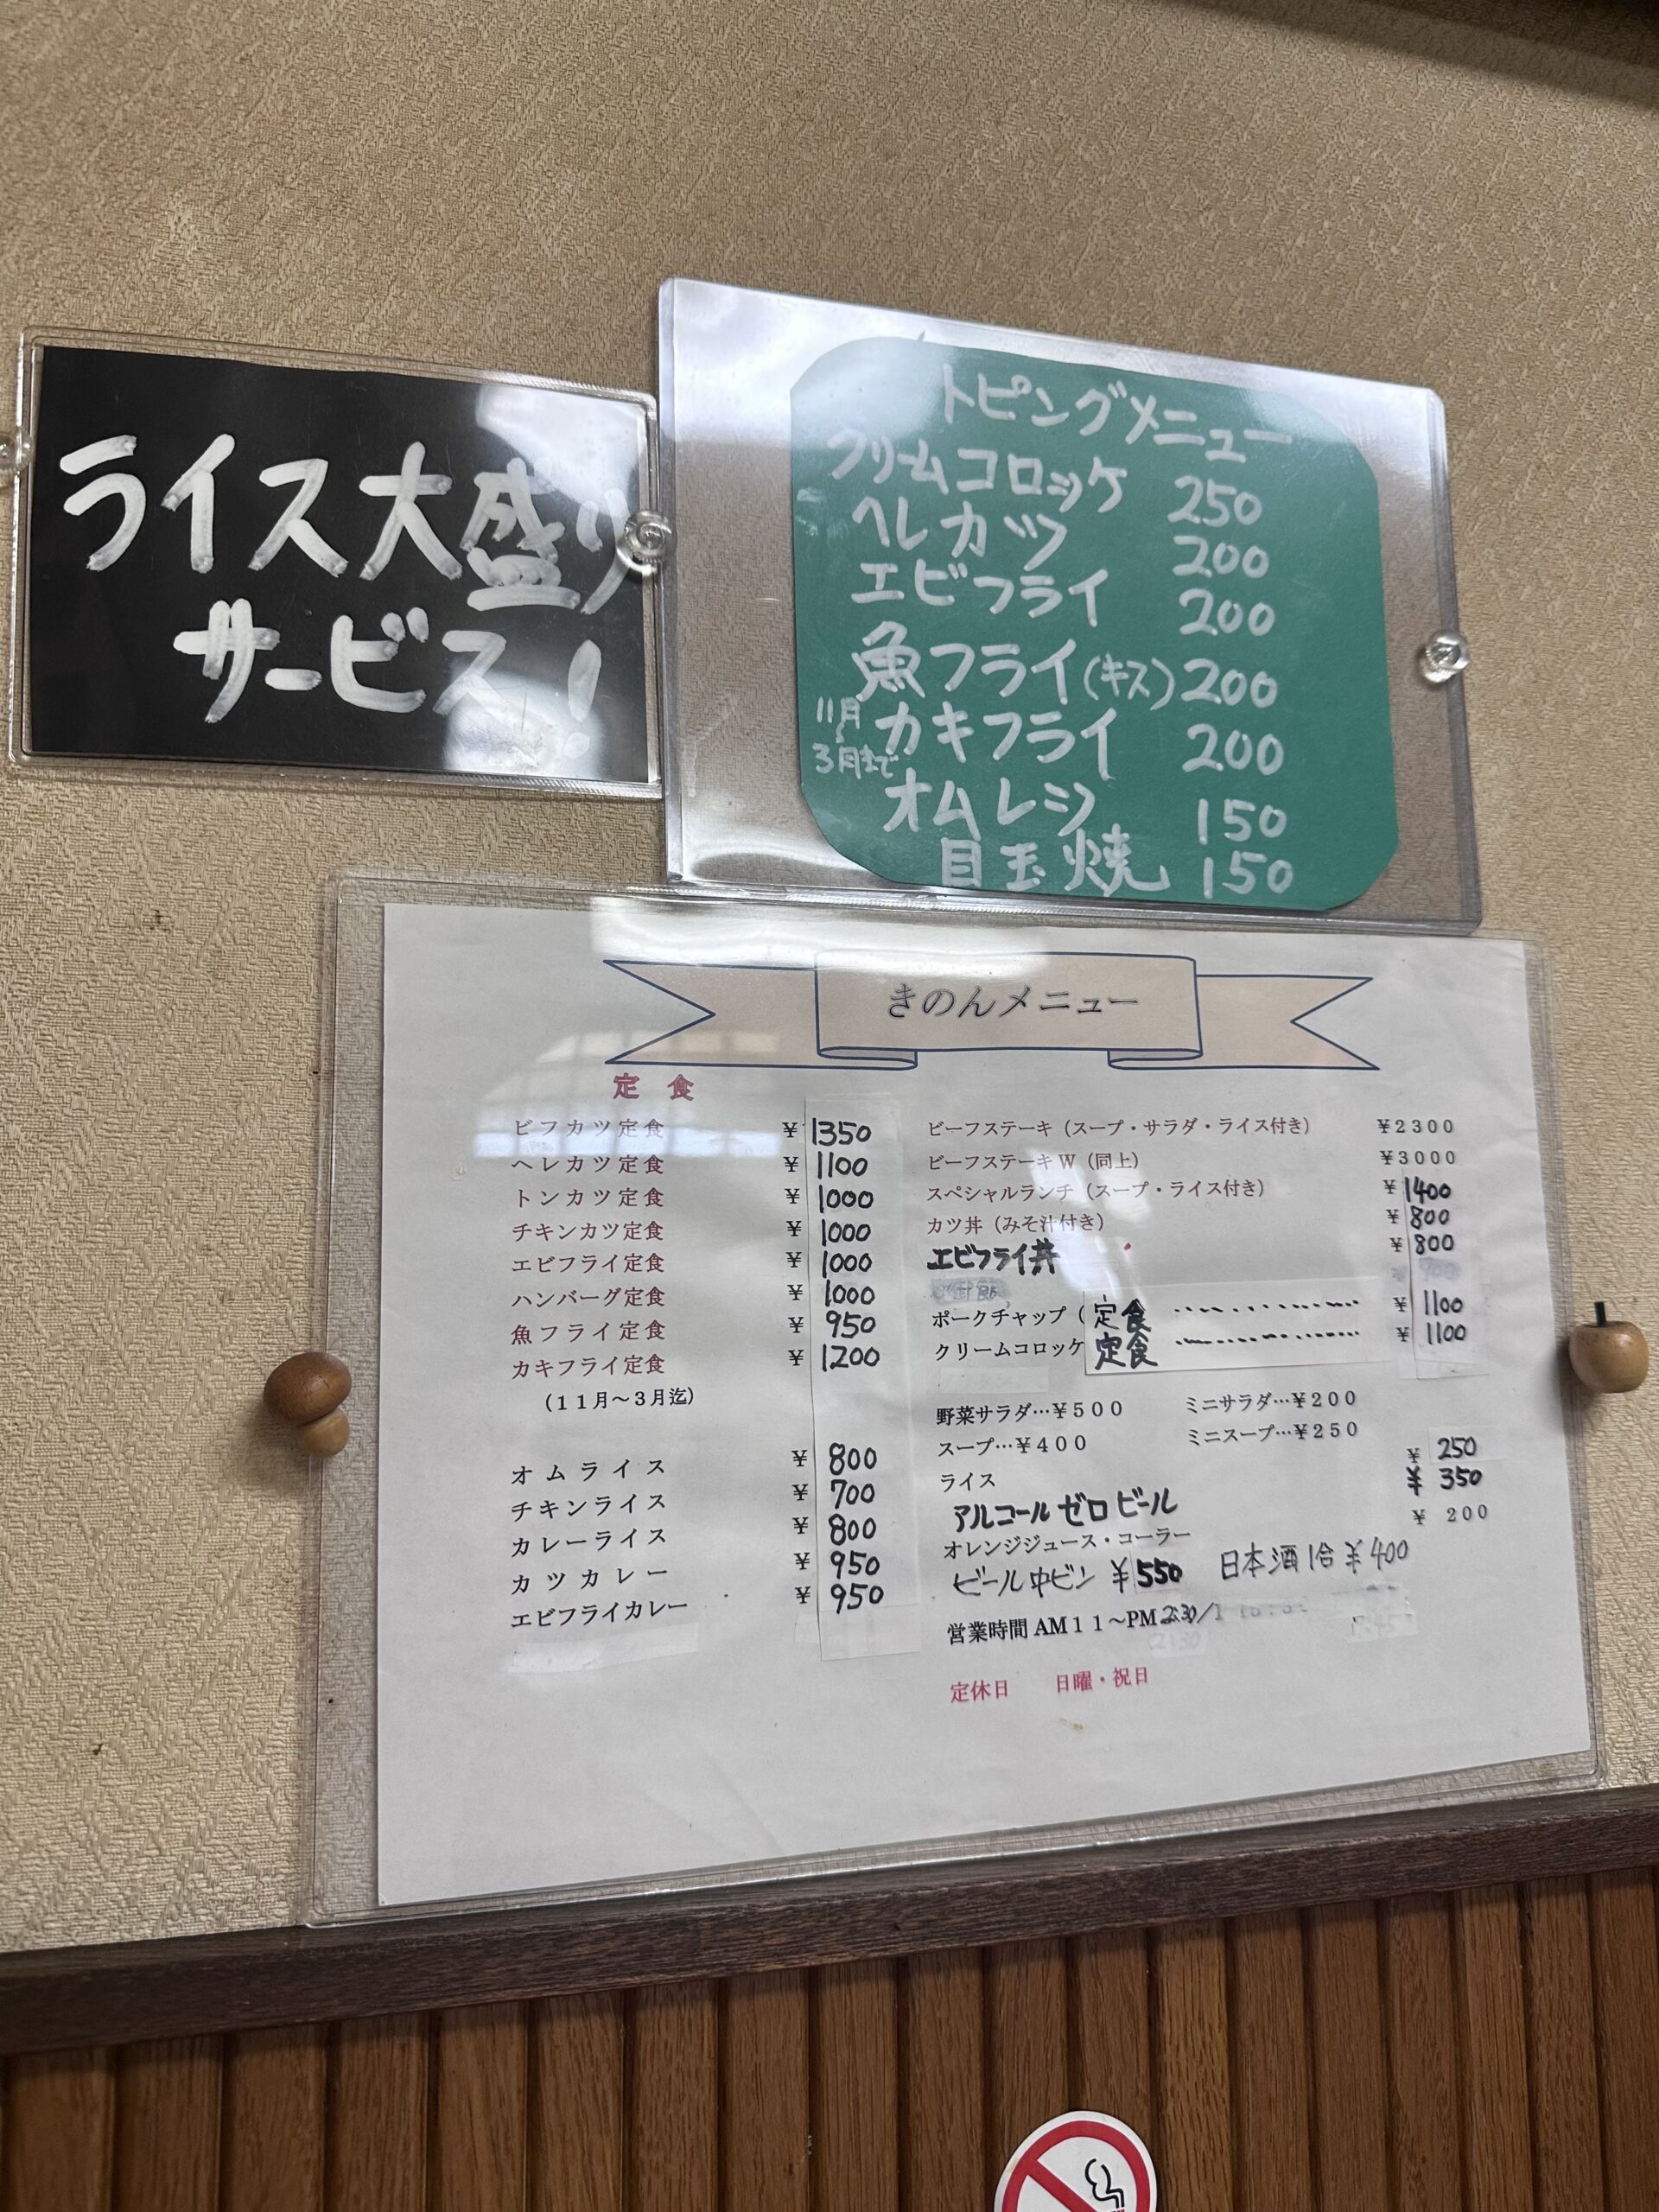 ライス大盛り
サービス!
トピングメニュー
クリームコロッケ 250
ヘレカツ 200
エビフライ 200
魚フライ(キス) 200
11月〜3月まで カキフライ 200
オムレツ 150
目玉焼 150
きのんメニュー
定 食
ビフカツ定食 ¥1350
ヘレカツ定食 ¥1100
トンカツ定食 ¥1000
チキンカツ定食 ¥1000
エビフライ定食 ¥1000
ハンバーグ定食 ¥1000
魚フライ定食 ¥950
カキフライ定食 ¥1200
(11月〜3月迄)
オムライス ¥800
チキンライス ¥700
カレーライス ¥800
カツカレー ¥950
エビフライカレー ¥950
ビーフステーキ(スープ・サラダ・ライス付き) ¥2300
ビーフステーキW(同上) ¥3000
スペシャルランチ(スープ・ライス付き) ¥1400
カツ丼(みそ汁付き) ¥800
エビフライ丼 ¥800
ポークチャップ(定食 ¥1100
クリームコロッケ定食 ¥1100
野菜サラダ…¥500 ミニサラダ…¥200
スープ…¥400 ミニスープ…¥250
ライス ¥250
アルコールゼロビール ¥350
オレンジジュース・コーラー ¥200
ビール中ビン ¥550 日本酒1合¥400
営業時間AM11〜PM2:30/
定休日 日曜・祝日